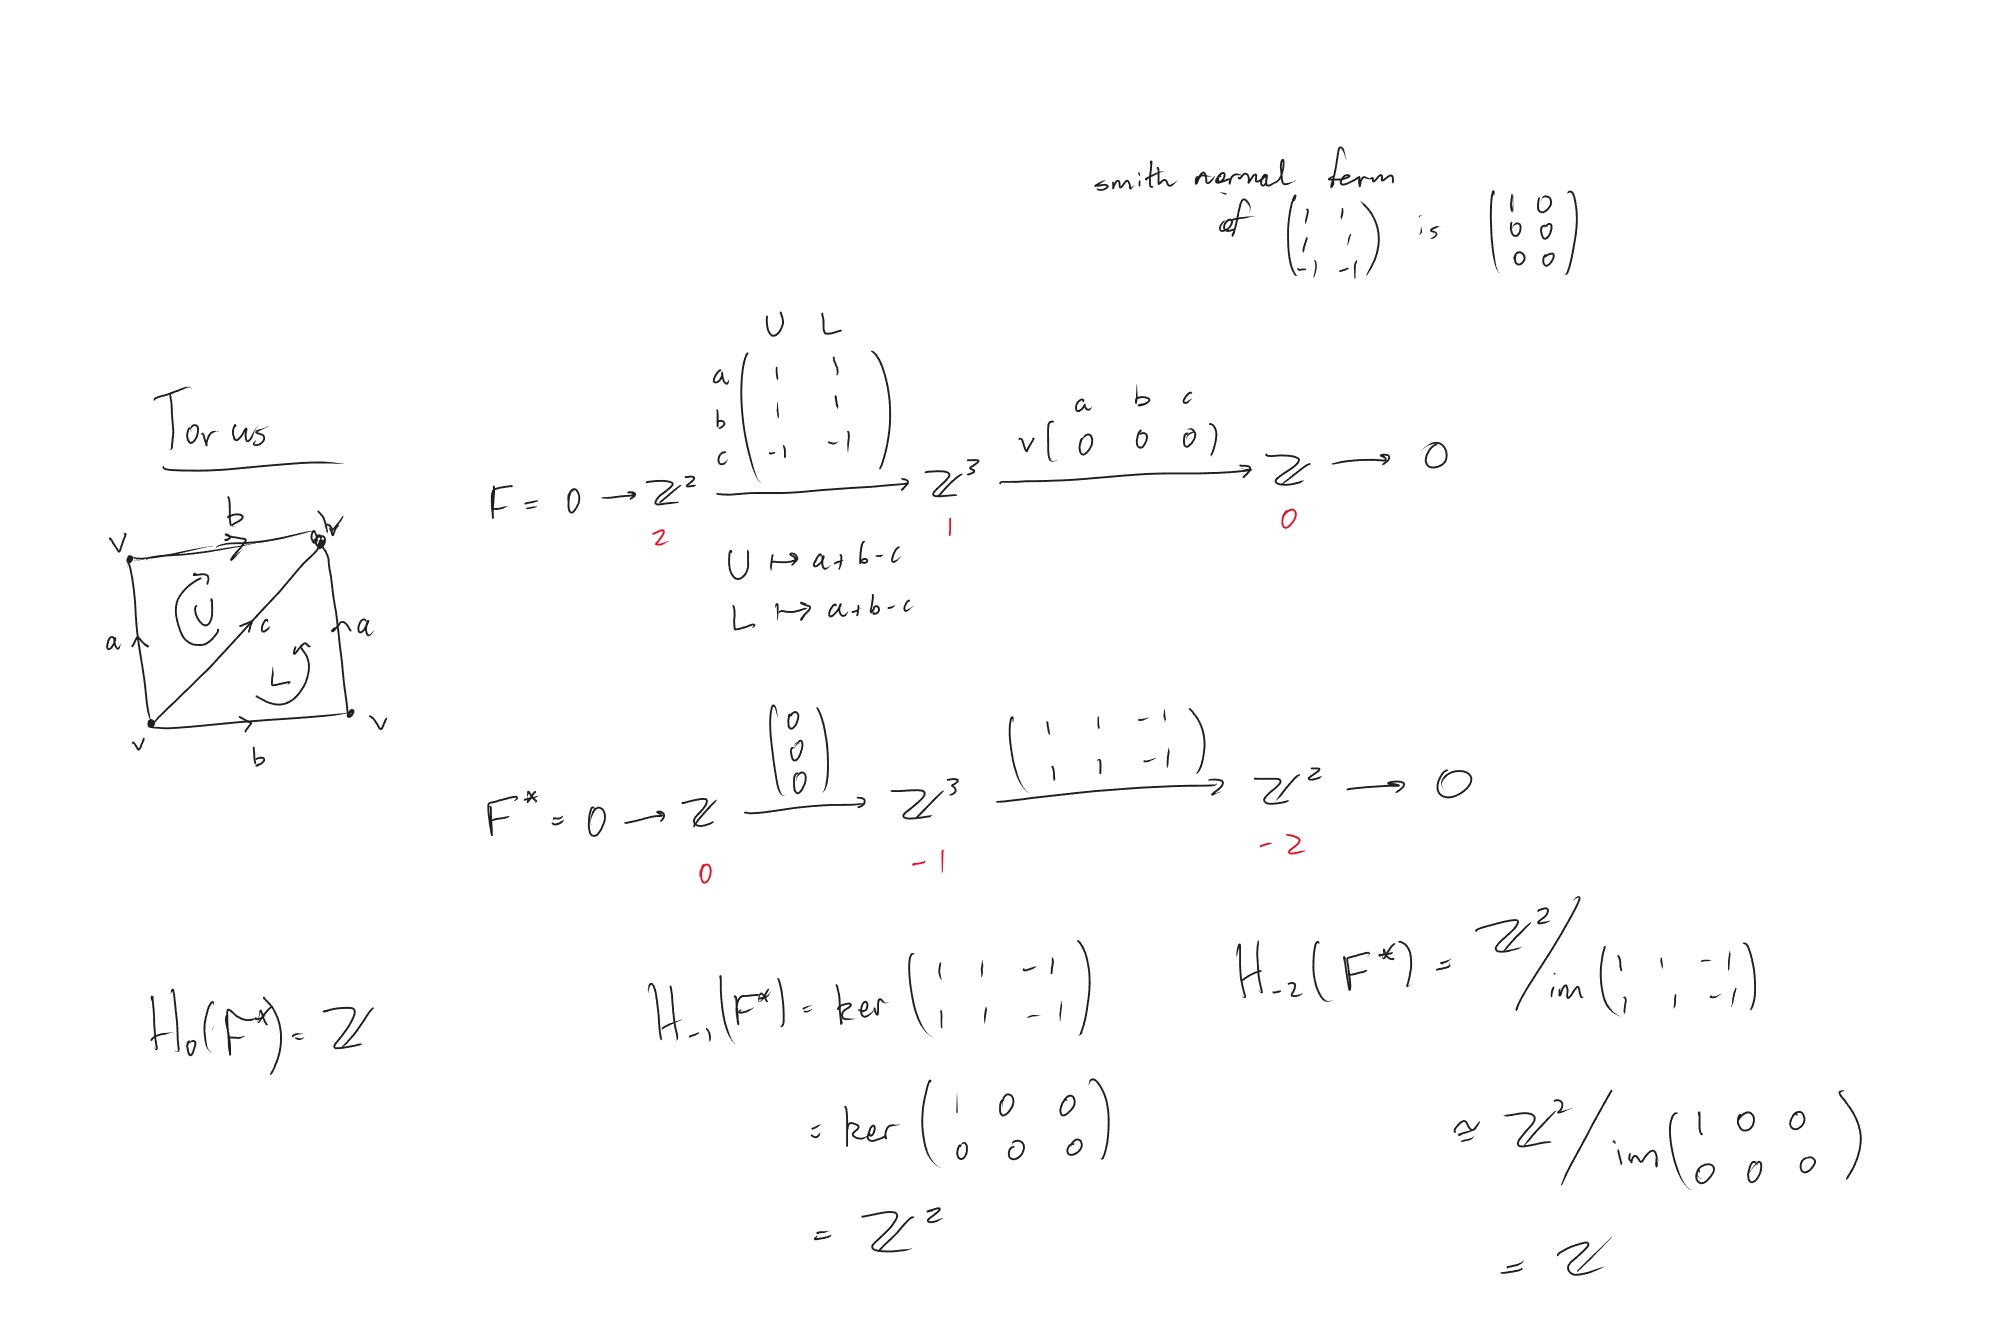 smith normal form
of ( 1 1 ; 1 1 ; -1 -1 ) is ( 1 0 ; 0 0 ; 0 0 )
Torus
b
v v
a U c a
L
v v
b
U L
a ( 1 1
b 1 1
c -1 -1 )
a b c
v ( 0 0 0 )
F = 0 → ℤ² → ℤ³ → ℤ → 0
2 1 0
U ↦ a+b-c
L ↦ a+b-c
( 0 ; 0 ; 0 ) ( 1 1 -1 ; 1 1 -1 )
F* = 0 → ℤ → ℤ³ → ℤ² → 0
0 -1 -2
H₀(F*) = ℤ
H₋₁(F*) = ker ( 1 1 -1 ; 1 1 -1 )
= ker ( 1 0 0 ; 0 0 0 )
= ℤ²
H₋₂(F*) = ℤ² / im ( 1 1 -1 ; 1 1 -1 )
≅ ℤ² / im ( 1 0 0 ; 0 0 0 )
= ℤ